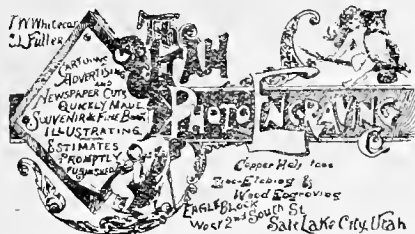 T.W. Whitecar
J. Fuller
CARTOONS
ADVERTISING
AND
NEWSPAPER CUTS
QUICKLY MADE.
SOUVENIR & FINE BOOK
ILLUSTRATING
ESTIMATES
PROMPTLY
FURNISHED
UTAH
PHOTO ENGRAVING
Copper Half tone
Zinc-Etching &
Wood Engraving
EAGLE BLOCK
West 2nd South St
Salt Lake City, Utah